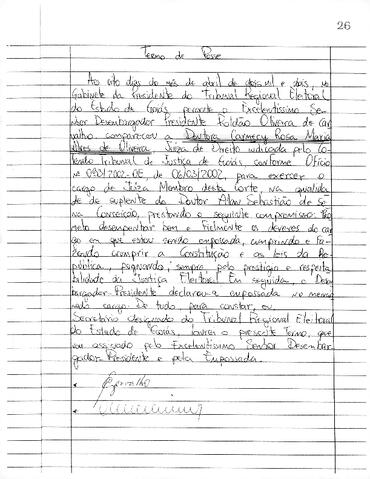 26
Termo de Posse
Ao oito dias do mês de abril de dois mil e dois, no
Gabinete da Presidente do Tribunal Regional Eleitoral
do Estado de Goiás, perante o Excelentíssimo Se-
nhor Desembargador Presidente Roldão Oliveira de Car-
valho, compareceu a Doutora Carmecy Rosa Maria
Alves de Oliveira, Juíza de Direito indicada pelo Co-
lendo Tribunal de Justiça de Goiás, conforme Ofício
de 06/03/2002, para exercer o
cargo de Juíza Membro desta Corte, na qualida-
de de suplente do Doutor Alan Sebastião de Se-
na Conceição, prestando o seguinte compromisso: Pro-
meto desempenhar bem e fielmente os deveres do car-
go em que estou sendo empossada, cumprindo e fa-
zendo cumprir a Constituição e as leis da Re-
pública, pugnando sempre pelo prestígio e respeita-
bilidade da Justiça Eleitoral. Em seguida, o Desem-
bargador-Presidente declarou-a empossada no mencio-
nado cargo. De tudo, para constar, eu,
Secretário designado do Tribunal Regional Eleitoral
do Estado de Goiás, lavrei o presente Termo, que
vai assinado pelo Excelentíssimo Senhor Desembar-
gador-Presidente e pela Empossada.